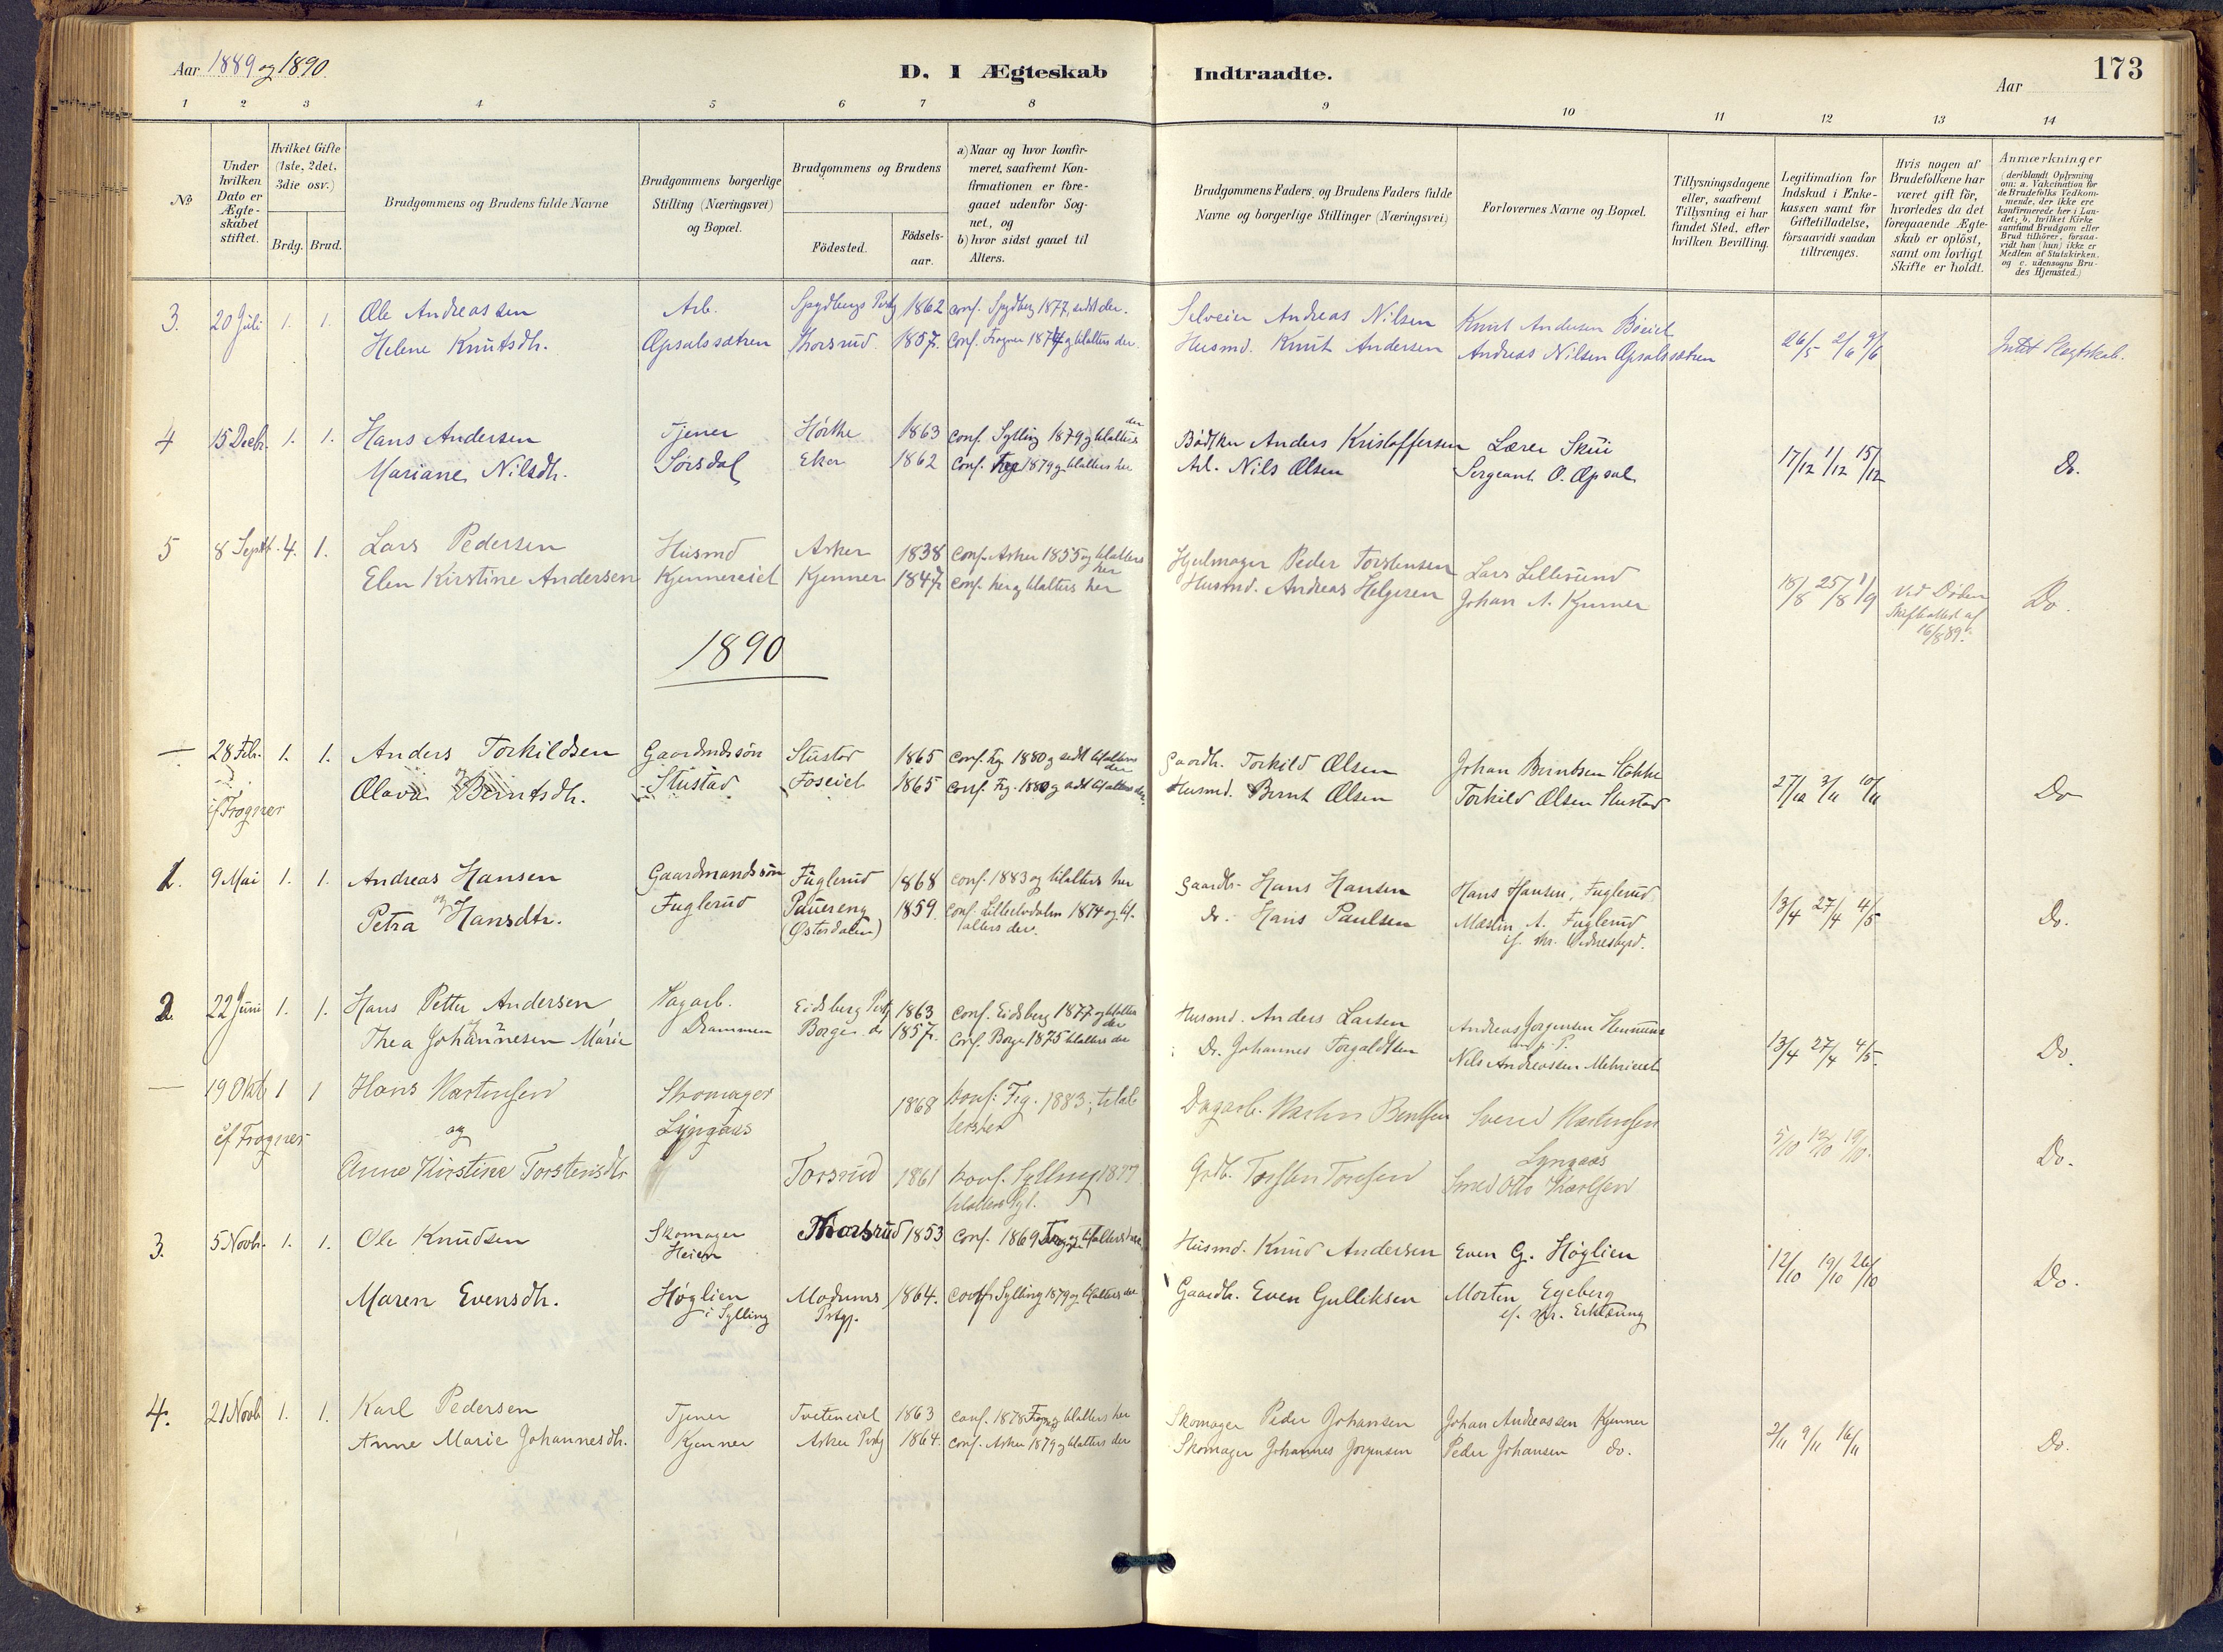 Aar 1889 og 1890
D. I Ægteskab Indtraadte.
Aar
173
1 2 3 4 5 6 7 8 9 10 11 12 13 14
№
Under hvilken Dato er Ægte-skabet stiftet.
Hvilket Gifte (1ste, 2det, 3die osv.)
Brdg. Brud.
Brudgommens og Brudens fulde Navne
Brudgommens borgerlige Stilling (Næringsvei) og Bopæl.
Brudgommens og Brudens
Födested.
Födsels-aar.
a) Naar og hvor konfir-meret, saafremt Kon-firmationen er fore-gaaet udenfor Sog-net, og
b) hvor sidst gaaet til Alters.
Brudgommens Faders og Brudens Faders fulde Navne og borgerlige Stillinger (Næringsvei)
Forlovernes Navne og Bopæl.
Tillysningsdagene eller, saafremt Tillysning ei har fundet Sted, efter hvilken Bevilling.
Legitimation for Indskud i Enke-kassen samt for Giftetilladelse, forsaavidt saadan tiltrænges.
Hvis nogen af Brudefolkene har været gift för, hvorledes da det foregaaende Ægte-skab er oplöst, samt om lovligt Skifte er holdt.
Anmærkninger (deriblandt Oplysning om: a. Vakcination for de Brudefolks Vedkom-mende, der ikke ere konfirmerede her i Lan-det; b. hvilket Kirke samfund Brudgom eller Brud tilhörer, forsaa-vidt han (hun) ikke er Medlem af Statskirken, og c. udensogns Bru-des Hjemsted.)
3. 20 Juli 1. 1. Ole Andreassen Arb. Spydbergs Pstg 1862 conf. Spydberg 1877, sidst der. Selveier Andreas Nilsen Knut Andersen Böeiet 26/5 2/6 9/6 Intet Slegtskab.
Helene Knutsdtr. Opsalssætren Thorsrud 1857. Conf. Frogner 1874 og tilalters der Husmd. Knut Andersen Andreas Nilsen Opsalssætren
4 15 Decbr. 1. 1. Hans Andersen Tjener Hörthe 1863 conf. Sylling 1879 og tilalters der Bödtker Anders Kristoffersen Lærer Skui 17/12 1/12 15/12 Do.
Mariane Nilsdtr. Sörsdal Eker 1862 Conf. 1879 og tilalters her Arb. Nils Olsen Sergeant O. Opsal
5 8 Septbr. 4. 1. Lars Pedersen Husmd Asker 1838 Conf. Asker 1855 og tilalters her Hjulmager Peder Torstensen Lars Lillesund 18/8 25/8 1/9 Ved Döden Skifteattest af 16/8 89. Do.
Elen Kirstine Andersen Kjennereiet Kjenner 1847 Conf. her og tilalters her Husmd. Andreas Helgesen Johan A. Kjenner
1890
— 28 Febr. 1. 1. Anders Torkildsen Gaardmdssön Stustad 1865 Conf. Frg. 1880 og sidst tilalters der Gaardbr. Torkild Olsen Johan Berntsen Stokke 27/10 3/11 10/11 Do
if Frogner og Olava Berntsdtr. Stustad Foseiet 1865 Conf. Frg. 1880 og sidst tilalters der. Husmd. Bernt Olsen Torkild Olsen Stustad
1. 9 Mai 1. 1. Andreas Hansen Gaardmandssön Fuglerud 1868 conf. 1883 og tilalters her Gaardbr. Hans Hansen Hans Hansen, Fuglerud 13/4 27/4 4/5 Do.
og Petra Hansdtr. Fuglerud (Østerdalen) 1859. Conf. 1874 og til-alters der. Do. Hans Paulsen A. Fuglerud if. skr. Vidnesbyrd.
2 22 Juni 1. 1. Hans Petter Andersen Dagarb. Eidsberg Pstg 1863 Conf. Eidsberg 1877 og tilalters der Husmd. Anders Larsen Andreas Jorgensen 13/4 27/4 4/5. Do.
Thea Johannesen Marie Drammen Borge do 1857. Conf. Borge 1875 tilalters der Do. Johannes Nils Andreassen
— 19 Oktb 1 1 Hans Martinsen Skomager 1868 konf: Frg. 1883; tilalters her Dagarb. Martin Bentsen Svend Martinsen Lyngaas 5/10 12/10 19/10. Do.
if Frogner og Lyngaas
Anne Kirstine Torstensdtr Torsrud 1861 konf. Sylling 1877 tilalters Syl. Grdb. Torsten Toresen Smed Otto Karlsen
3. 5 Novb. 1. 1. Ole Knudsen Skomager Heien Thorsrud 1853 Conf. 1869 tilalters der Husmd. Knud Andersen Even G. Höglien 12/10 19/10 26/10 Do.
Maren Evensdtr. Höglien i Sylling Modums Pstgj. 1864. Conf. Sylling 1879 og tilalters der Gaardbr. Even Gulliksen Morten Egeberg if. skr. Erklæring
4. 21 Novb 1. 1. Karl Pedersen Tjener Tveteneiet 1863 Conf. 1878 Frogner tilalters her Skomager Peder Johansen Johan Andreassen Kjenner 2/11 9/11 16/11 Do.
Anne Marie Johannesdtr. Kjenner Asker Pstg 1864. Conf. Asker 1879 og tilalters der Skomager Johannes Jorgensen Peder Johansen do.